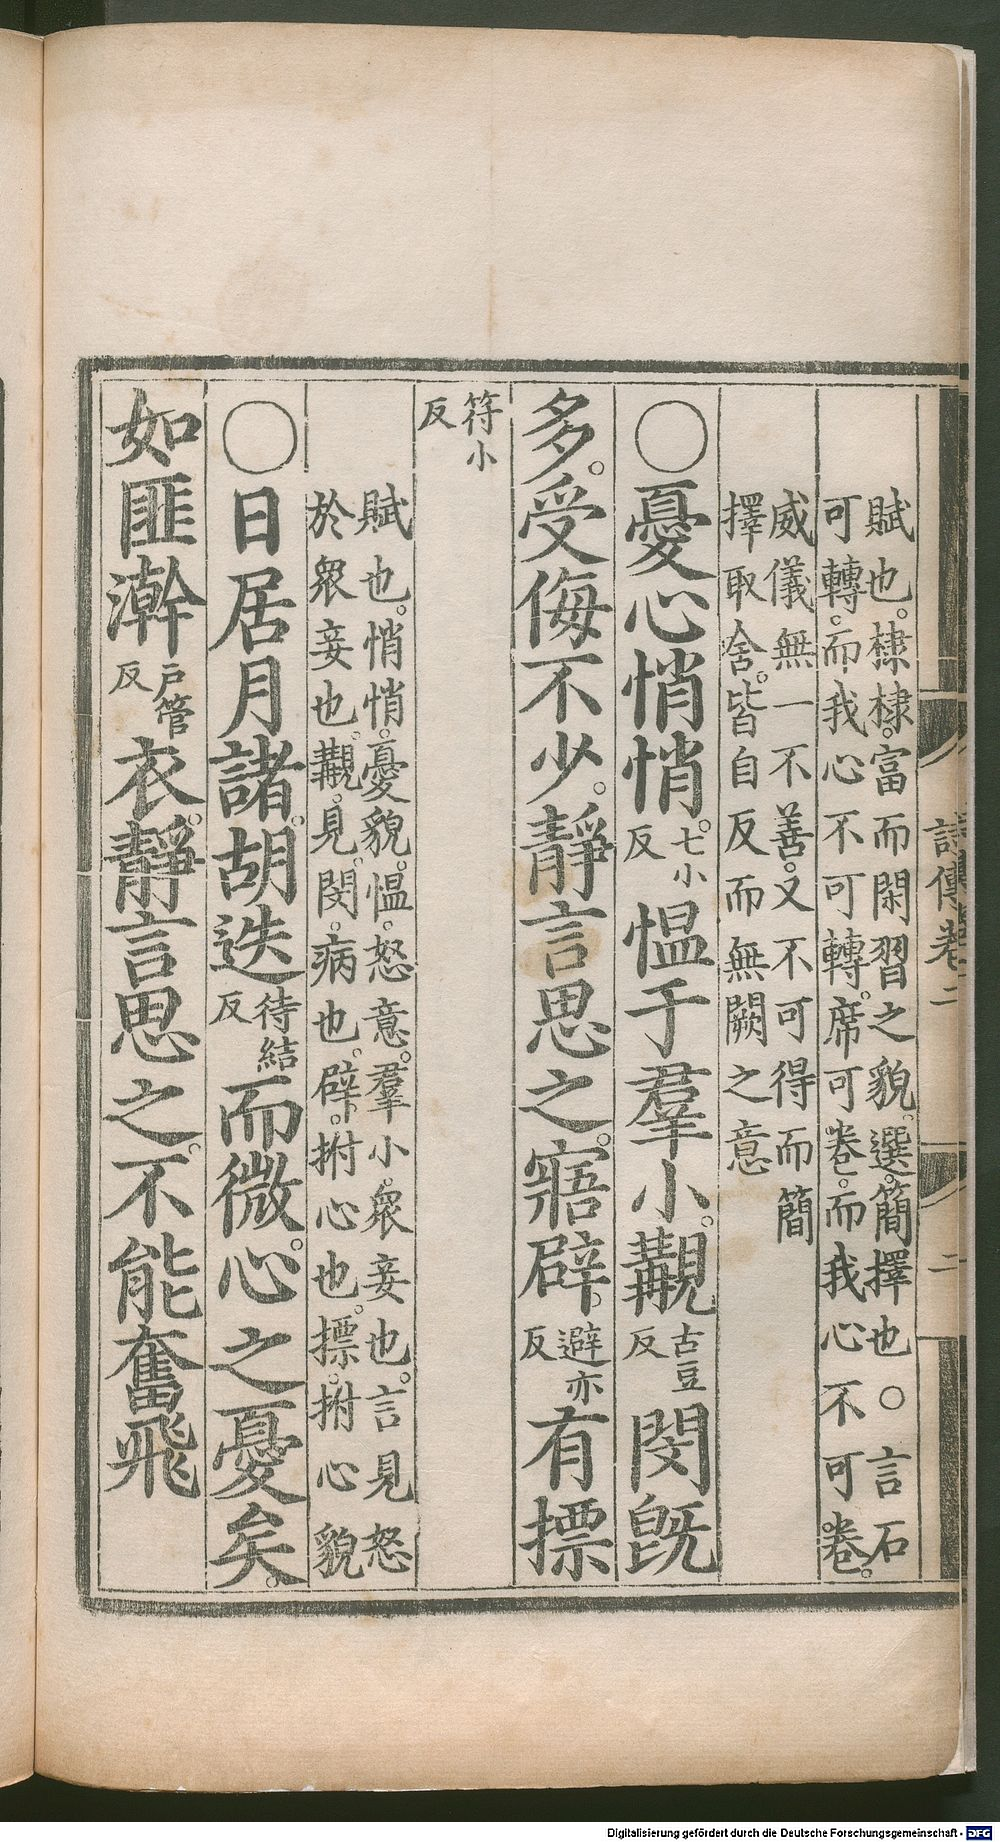 賦也。棣棣。富而閑習之貌。選。簡擇也○言石
可轉。而我心不可轉。席可卷。而我心不可卷。
威儀無一不善。又不可得而簡
擇取舍。皆自反而無闕之意
○憂心悄悄。七小反慍于羣小。覯古豆反閔旣
多。受侮不少。靜言思之。寤辟。避亦反有摽
符小反
賦也。悄悄。憂貌。慍。怒意。羣小。衆妾也。言見怒
於衆妾也。覯。見。閔。病也。辟。拊心也。摽。拊心貌
○日居月諸。胡迭待結反而微。心之憂矣。
如匪澣戶管反衣。靜言思之。不能奮飛
詩傳卷二
二
Digitalisierung gefördert durch die Deutsche Forschungsgemeinschaft - DFG